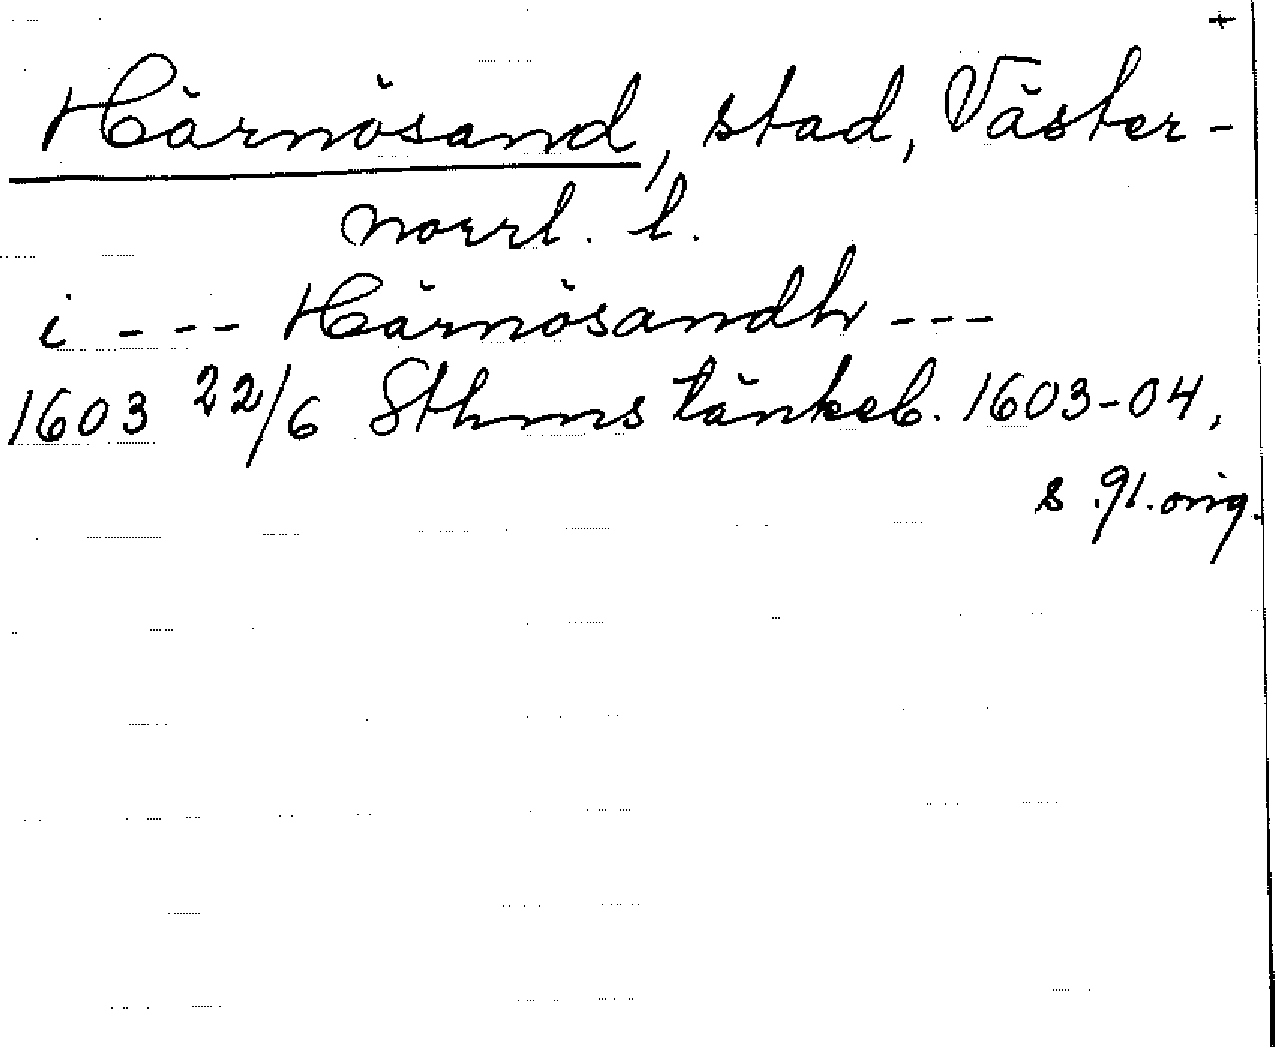 +
Härnösand, stad, Väster-
norrl. l.
i - - - Härnösandh - - -
1603 22/6 Sthms tänkeb. 1603-04,
s. 91. orig.